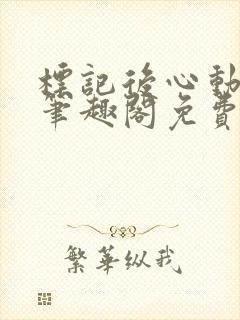 標記後心動
筆趣閣免費
繁華纵我